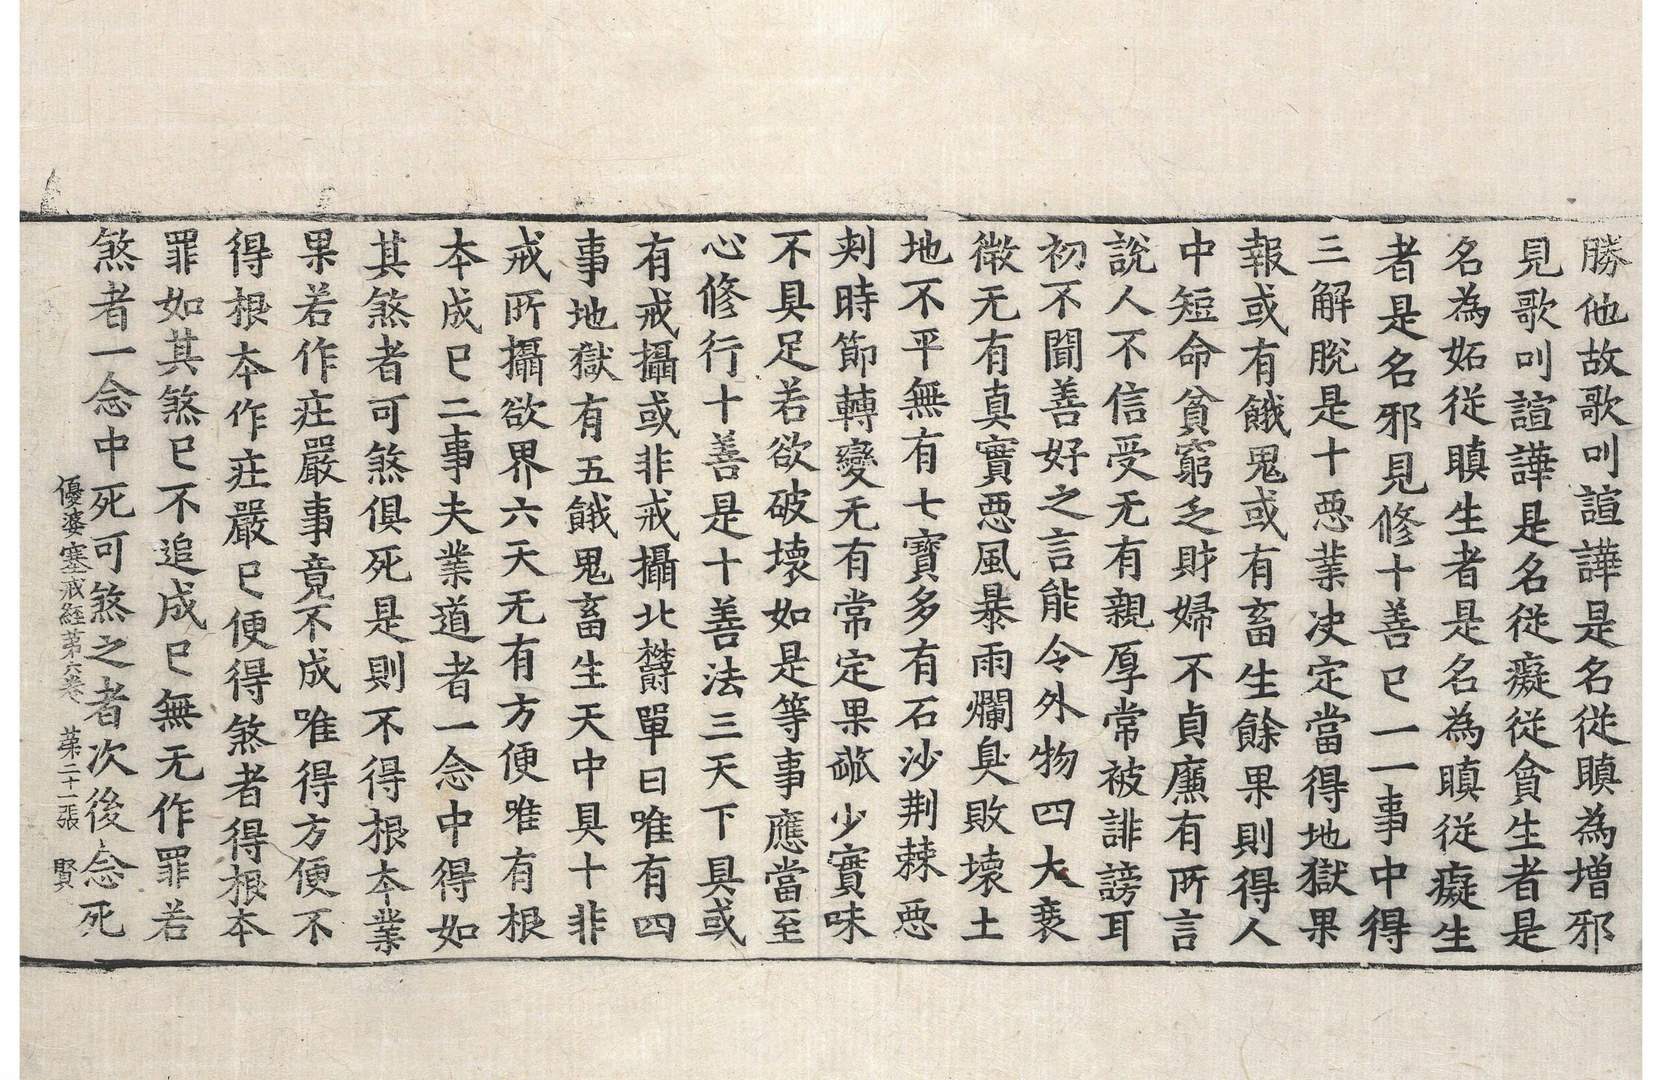 勝他故歌叫諠譁是名從瞋為增邪
見歌叫諠譁是名從癡從貪生者是
名為妬從瞋生者是名為瞋從癡生
者是名邪見修十善已一一事中得
三解脫是十惡業决定當得地獄果
報或有餓鬼或有畜生餘果則得人
中短命貧窮乏財婦不貞廉有所言
說人不信受无有親厚常被誹謗耳
初不聞善好之言能令外物四大衰
微无有真實惡風暴雨爛臭敗壞土
地不平無有七寶多有石沙荆棘惡
刾時節轉變无有常定果蓏少實味
不具足若欲破壞如是等事應當至
心修行十善是十善法三天下具或
有戒攝或非戒攝北欝單曰唯有四
事地獄有五餓鬼畜生天中具十非
戒所攝欲界六天无有方便唯有根
本成已二事夫業道者一念中得如
其煞者可煞俱死是則不得根本業
果若作庄嚴事竟不成唯得方便不
得根本作庄嚴已便得煞者得根本
罪如其煞已不追成已無无作罪若
煞者一念中死可煞之者次後念死
優婆塞戒經第六卷　第二十一張　賢